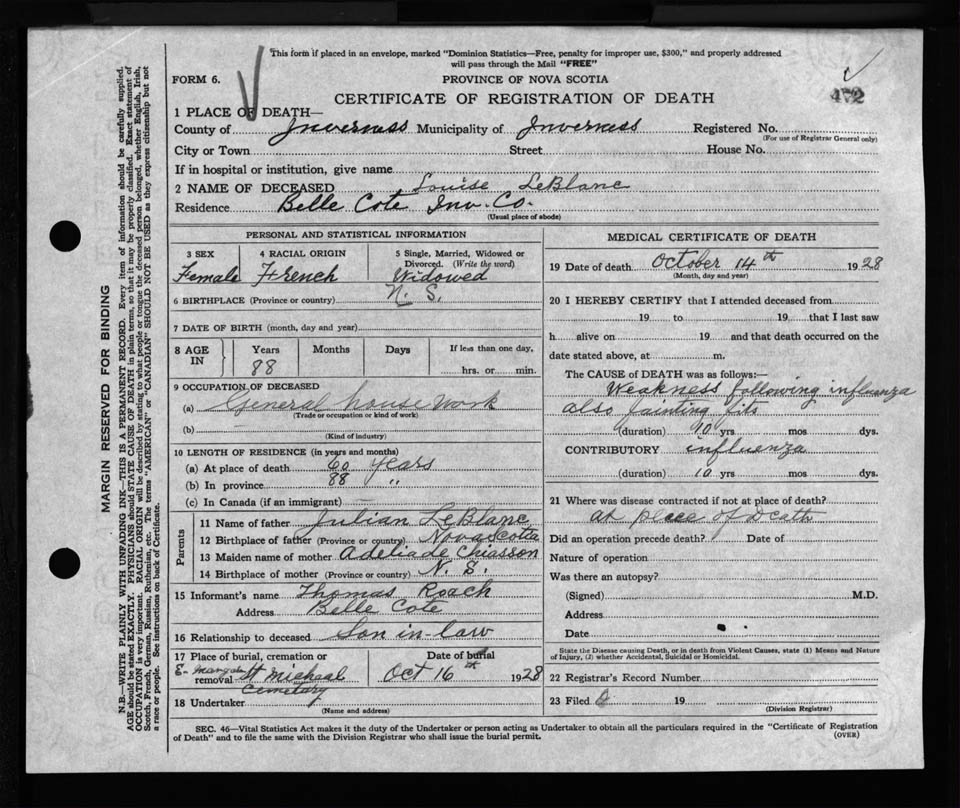 This form if placed in an envelope, marked "Dominion Statistics—Free, penalty for improper use, $300," and properly addressed
will pass through the Mail "FREE"
FORM 6.
PROVINCE OF NOVA SCOTIA
CERTIFICATE OF REGISTRATION OF DEATH
472
1 PLACE OF DEATH—
County of Inverness Municipality of Inverness Registered No.
(For use of Registrar General only)
City or Town Street House No.
If in hospital or institution, give name
2 NAME OF DECEASED Louise LeBlanc
Residence Belle Cote Inv. Co.
(Usual place of abode)
PERSONAL AND STATISTICAL INFORMATION
3 SEX 4 RACIAL ORIGIN 5 Single, Married, Widowed or
Divorced. (Write the word)
Female French Widowed
6 BIRTHPLACE (Province or country) N. S.
7 DATE OF BIRTH (month, day and year)
8 AGE IN Years Months Days If less than one day,
88 hrs. or min.
9 OCCUPATION OF DECEASED
(a) General house work
(Trade or occupation or kind of work)
(b)
(Kind of industry)
10 LENGTH OF RESIDENCE (in years and months)
(a) At place of death 60 years
(b) In province 88 "
(c) In Canada (if an immigrant)
Parents
11 Name of father Julian LeBlanc
12 Birthplace of father (Province or country) Nova Scotia
13 Maiden name of mother Adeliade Chiasson
14 Birthplace of mother (Province or country) N. S.
15 Informant's name Thomas Roach
Address Belle Cote
16 Relationship to deceased Son in-law
17 Place of burial, cremation or Date of burial
removal St Michael Oct 16th 1928
Cemetary
18 Undertaker
(Name and address)
MEDICAL CERTIFICATE OF DEATH
19 Date of death October 14th 1928
(Month, day and year)
20 I HEREBY CERTIFY that I attended deceased from
19 to 19 that I last saw
h alive on 19 and that death occurred on the
date stated above, at m.
The CAUSE of DEATH was as follows:—
Weakness following influenza
also fainting fits
(duration) 10 yrs mos dys.
CONTRIBUTORY influenza
(duration) 10 yrs mos dys.
21 Where was disease contracted if not at place of death?
at place of Death
Did an operation precede death? Date of
Nature of operation
Was there an autopsy?
(Signed) M.D.
Address
Date
State the Disease causing Death, or in death from Violent Causes, state (1) Means and Nature
of Injury, (2) whether Accidental, Suicidal or Homicidal.
22 Registrar's Record Number
23 Filed 19
(Division Registrar)
SEC. 46—Vital Statistics Act makes it the duty of the Undertaker or person acting as Undertaker to obtain all the particulars required in the "Certificate of Registration
of Death" and to file the same with the Division Registrar who shall issue the burial permit.
(OVER)
MARGIN RESERVED FOR BINDING
N.B.—WRITE PLAINLY WITH UNFADING INK—THIS IS A PERMANENT RECORD. Every item of information should be carefully supplied.
AGE should be stated EXACTLY. PHYSICIANS should STATE CAUSE OF DEATH in plain terms, so that it may be properly classified. Exact statement of
OCCUPATION is very important. RACIAL ORIGIN will be described by stating to what people or tongue the deceased person belonged, whether English, Irish,
Scotch, French, German, Russian, Ruthenian, etc. The terms "AMERICAN" or "CANADIAN" SHOULD NOT BE USED as they express citizenship but not
a race or people. See instructions on back of Certificate.